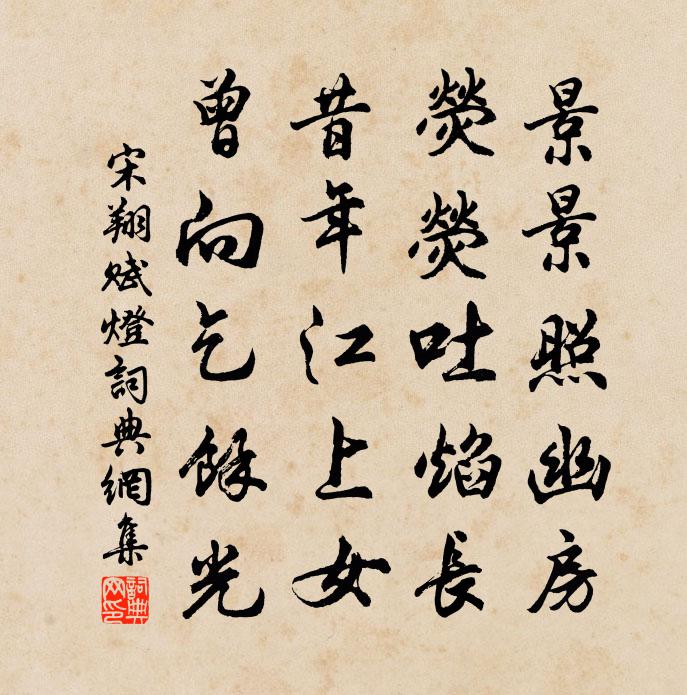 景景照幽房
熒熒吐焰長
昔年江上女
曾向乞餘光
宋翔賦燈詞典網集
詞典網印